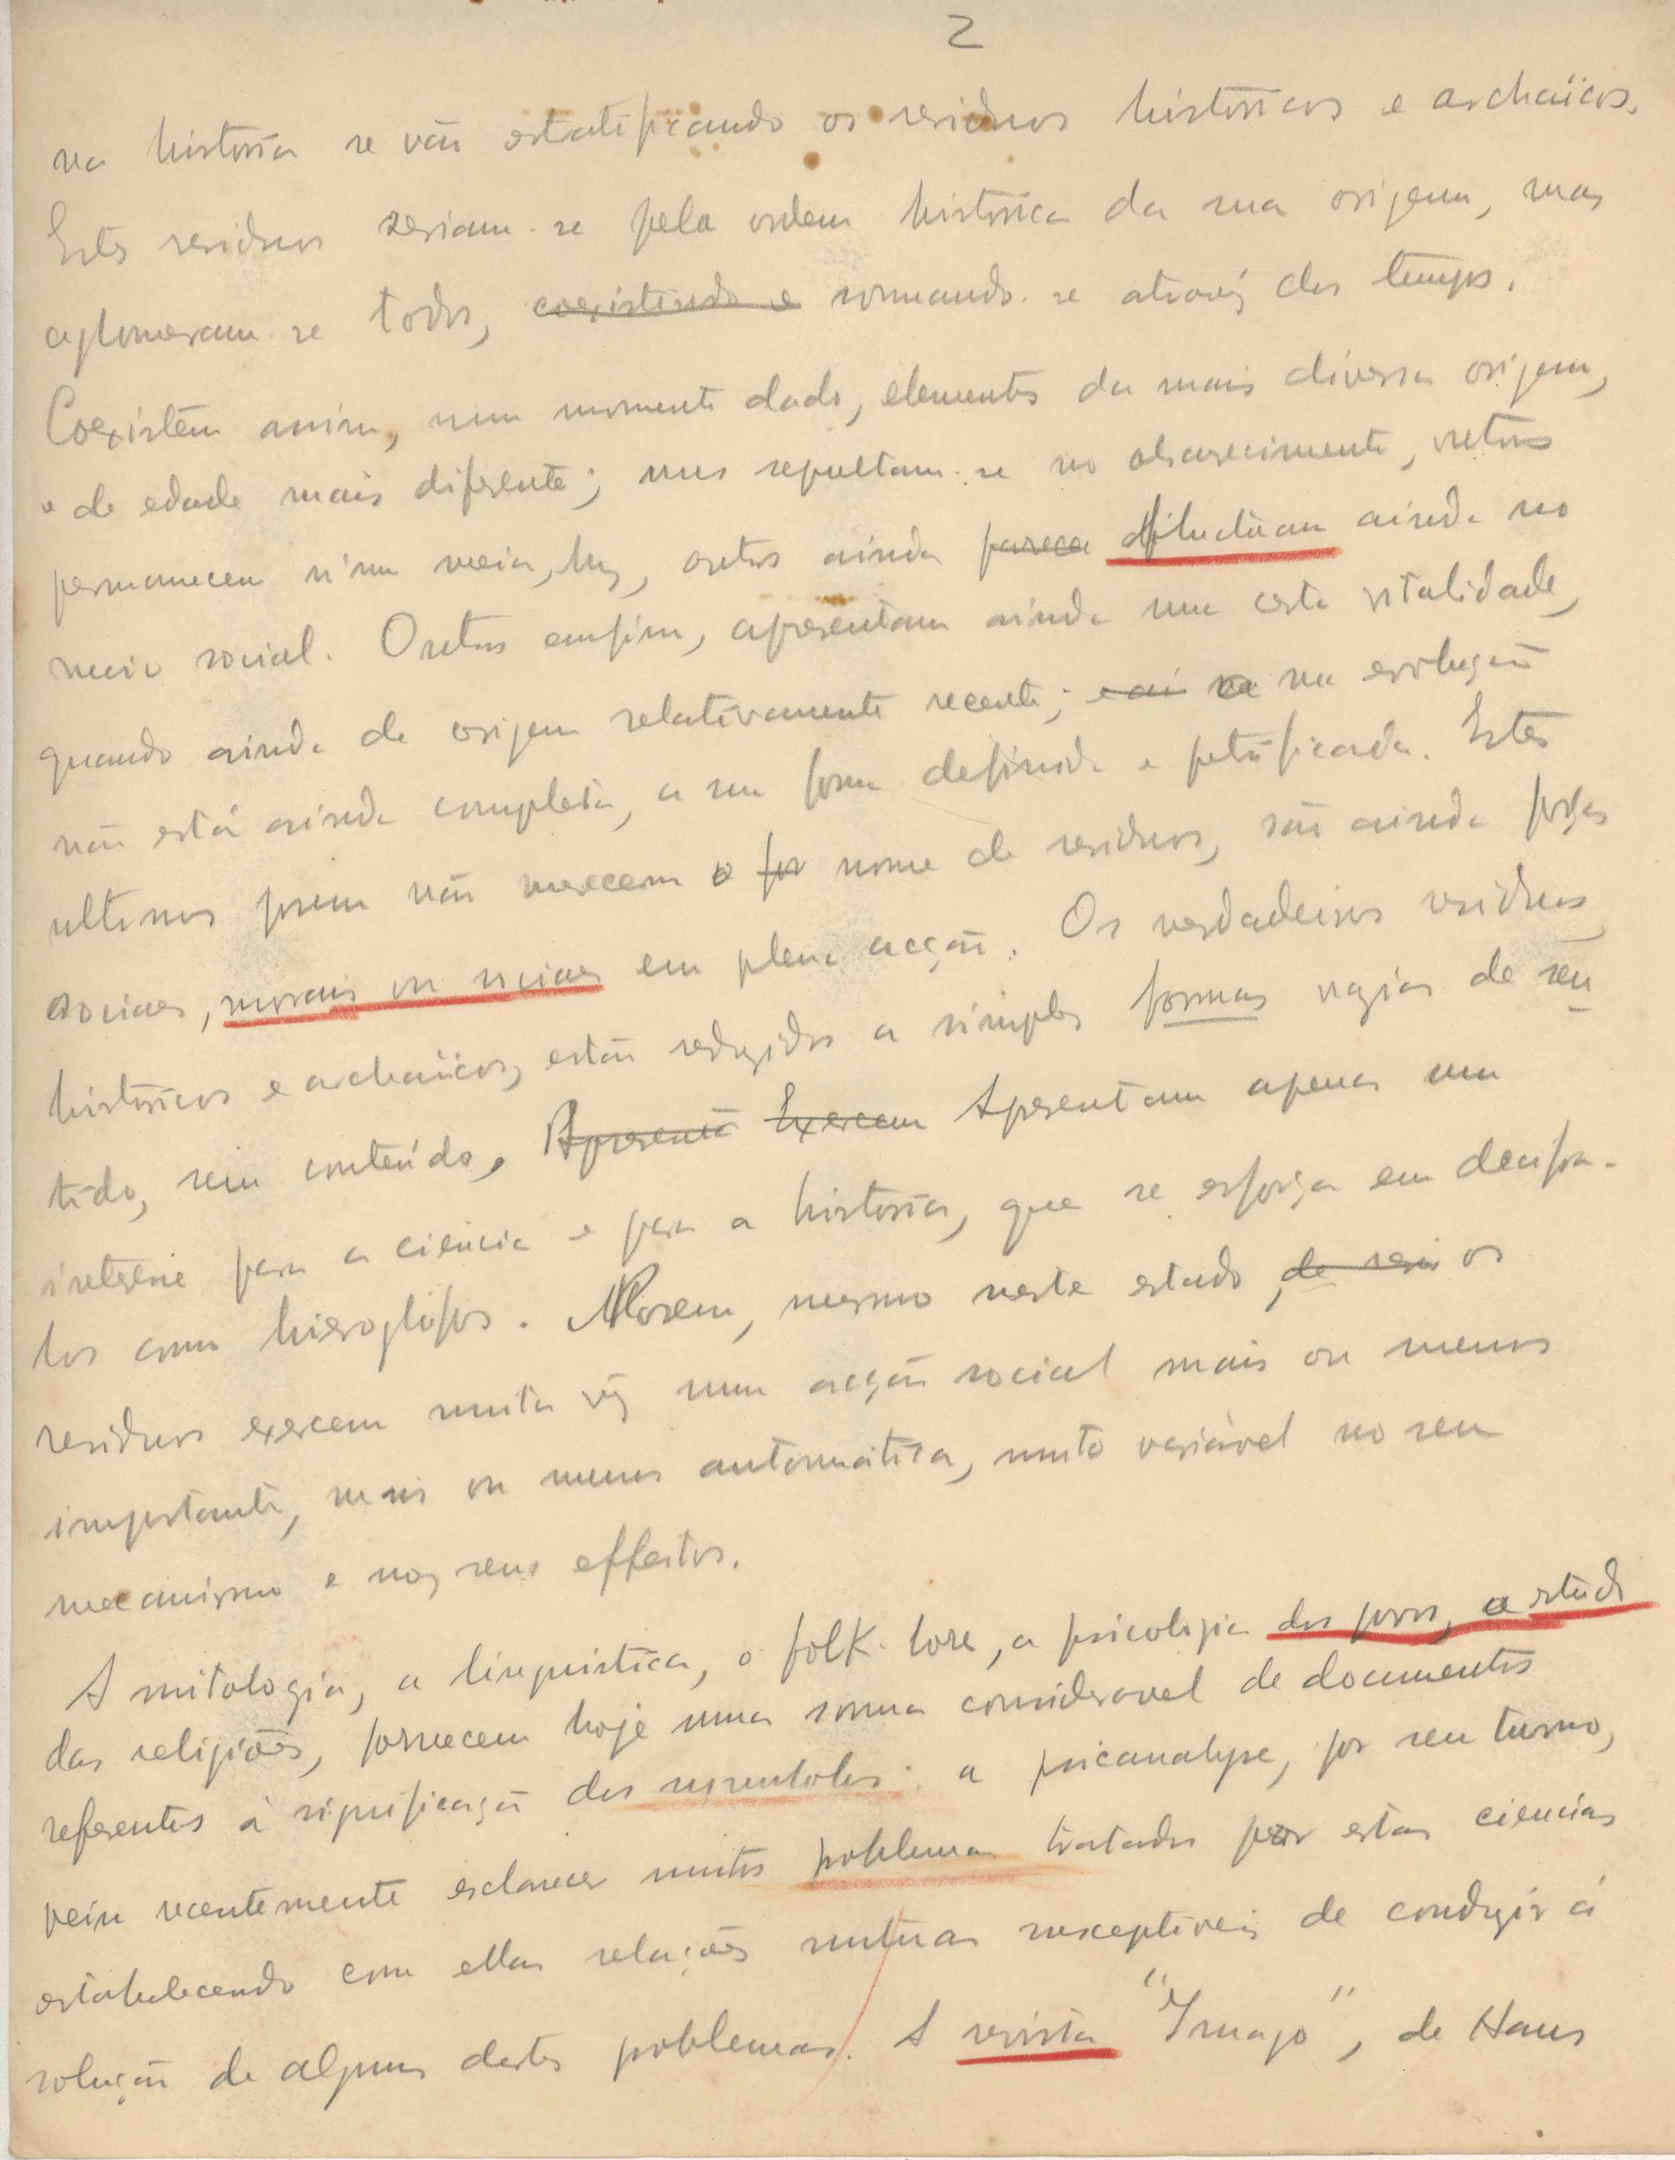 2
na historia se vão estratificando os residuos historicos e archaïcos.
Estes residuos seriam-se pela ordem historica da sua origem, mas
aglomeram-se todos, coexistindo e sommando-se através dos tempos.
Coexistem assim, num momento dado, elementos da mais diversa origem,
e de edade mais diferente; uns sepultam-se no obscurecimento, outros
permanecem n'uma meia, luz, outros ainda parece fluctuam ainda no
meio social. Outros emfim, apresentam ainda uma certa vitalidade,
quando ainda de origem relativamente recente; na evolução
não está ainda completa, a sua forma definida e petrificada. Estes
ultimos porem não merecem o por nome de residuos, são ainda forças
sociaes, morais ou sociaes em plena acção. Os verdadeiros residuos
historicos e archaïcos, estão reduzidos a simples formas vazias de sen
tido, sem conteúdo. Apresentã Exercem Apresentam apenas um
interesse para a ciencia e para a historia, que se esforça em decifra-
los como hieroglifos. Porem, mesmo neste estado, de resi os
residuos exercem muita vez uma acção social mais ou menos
importante, mais ou menos automatica, muito variável no seu
mecanismo e nos seus effeitos.
A mitologia, a linguistica, o folk-lore, a psicologia dos povos, o estudo
das religiões, fornecem hoje uma somma consideravel de documentos
referentes á significação dos a psicanalyse, por seu turno,
veiu recentemente esclarecer muitos problemas tratados por estas ciencias
estabelecendo com ellas relações mutuas susceptiveis de conduzir á
solução de alguns destes problemas. A revista "Imago", de Hans